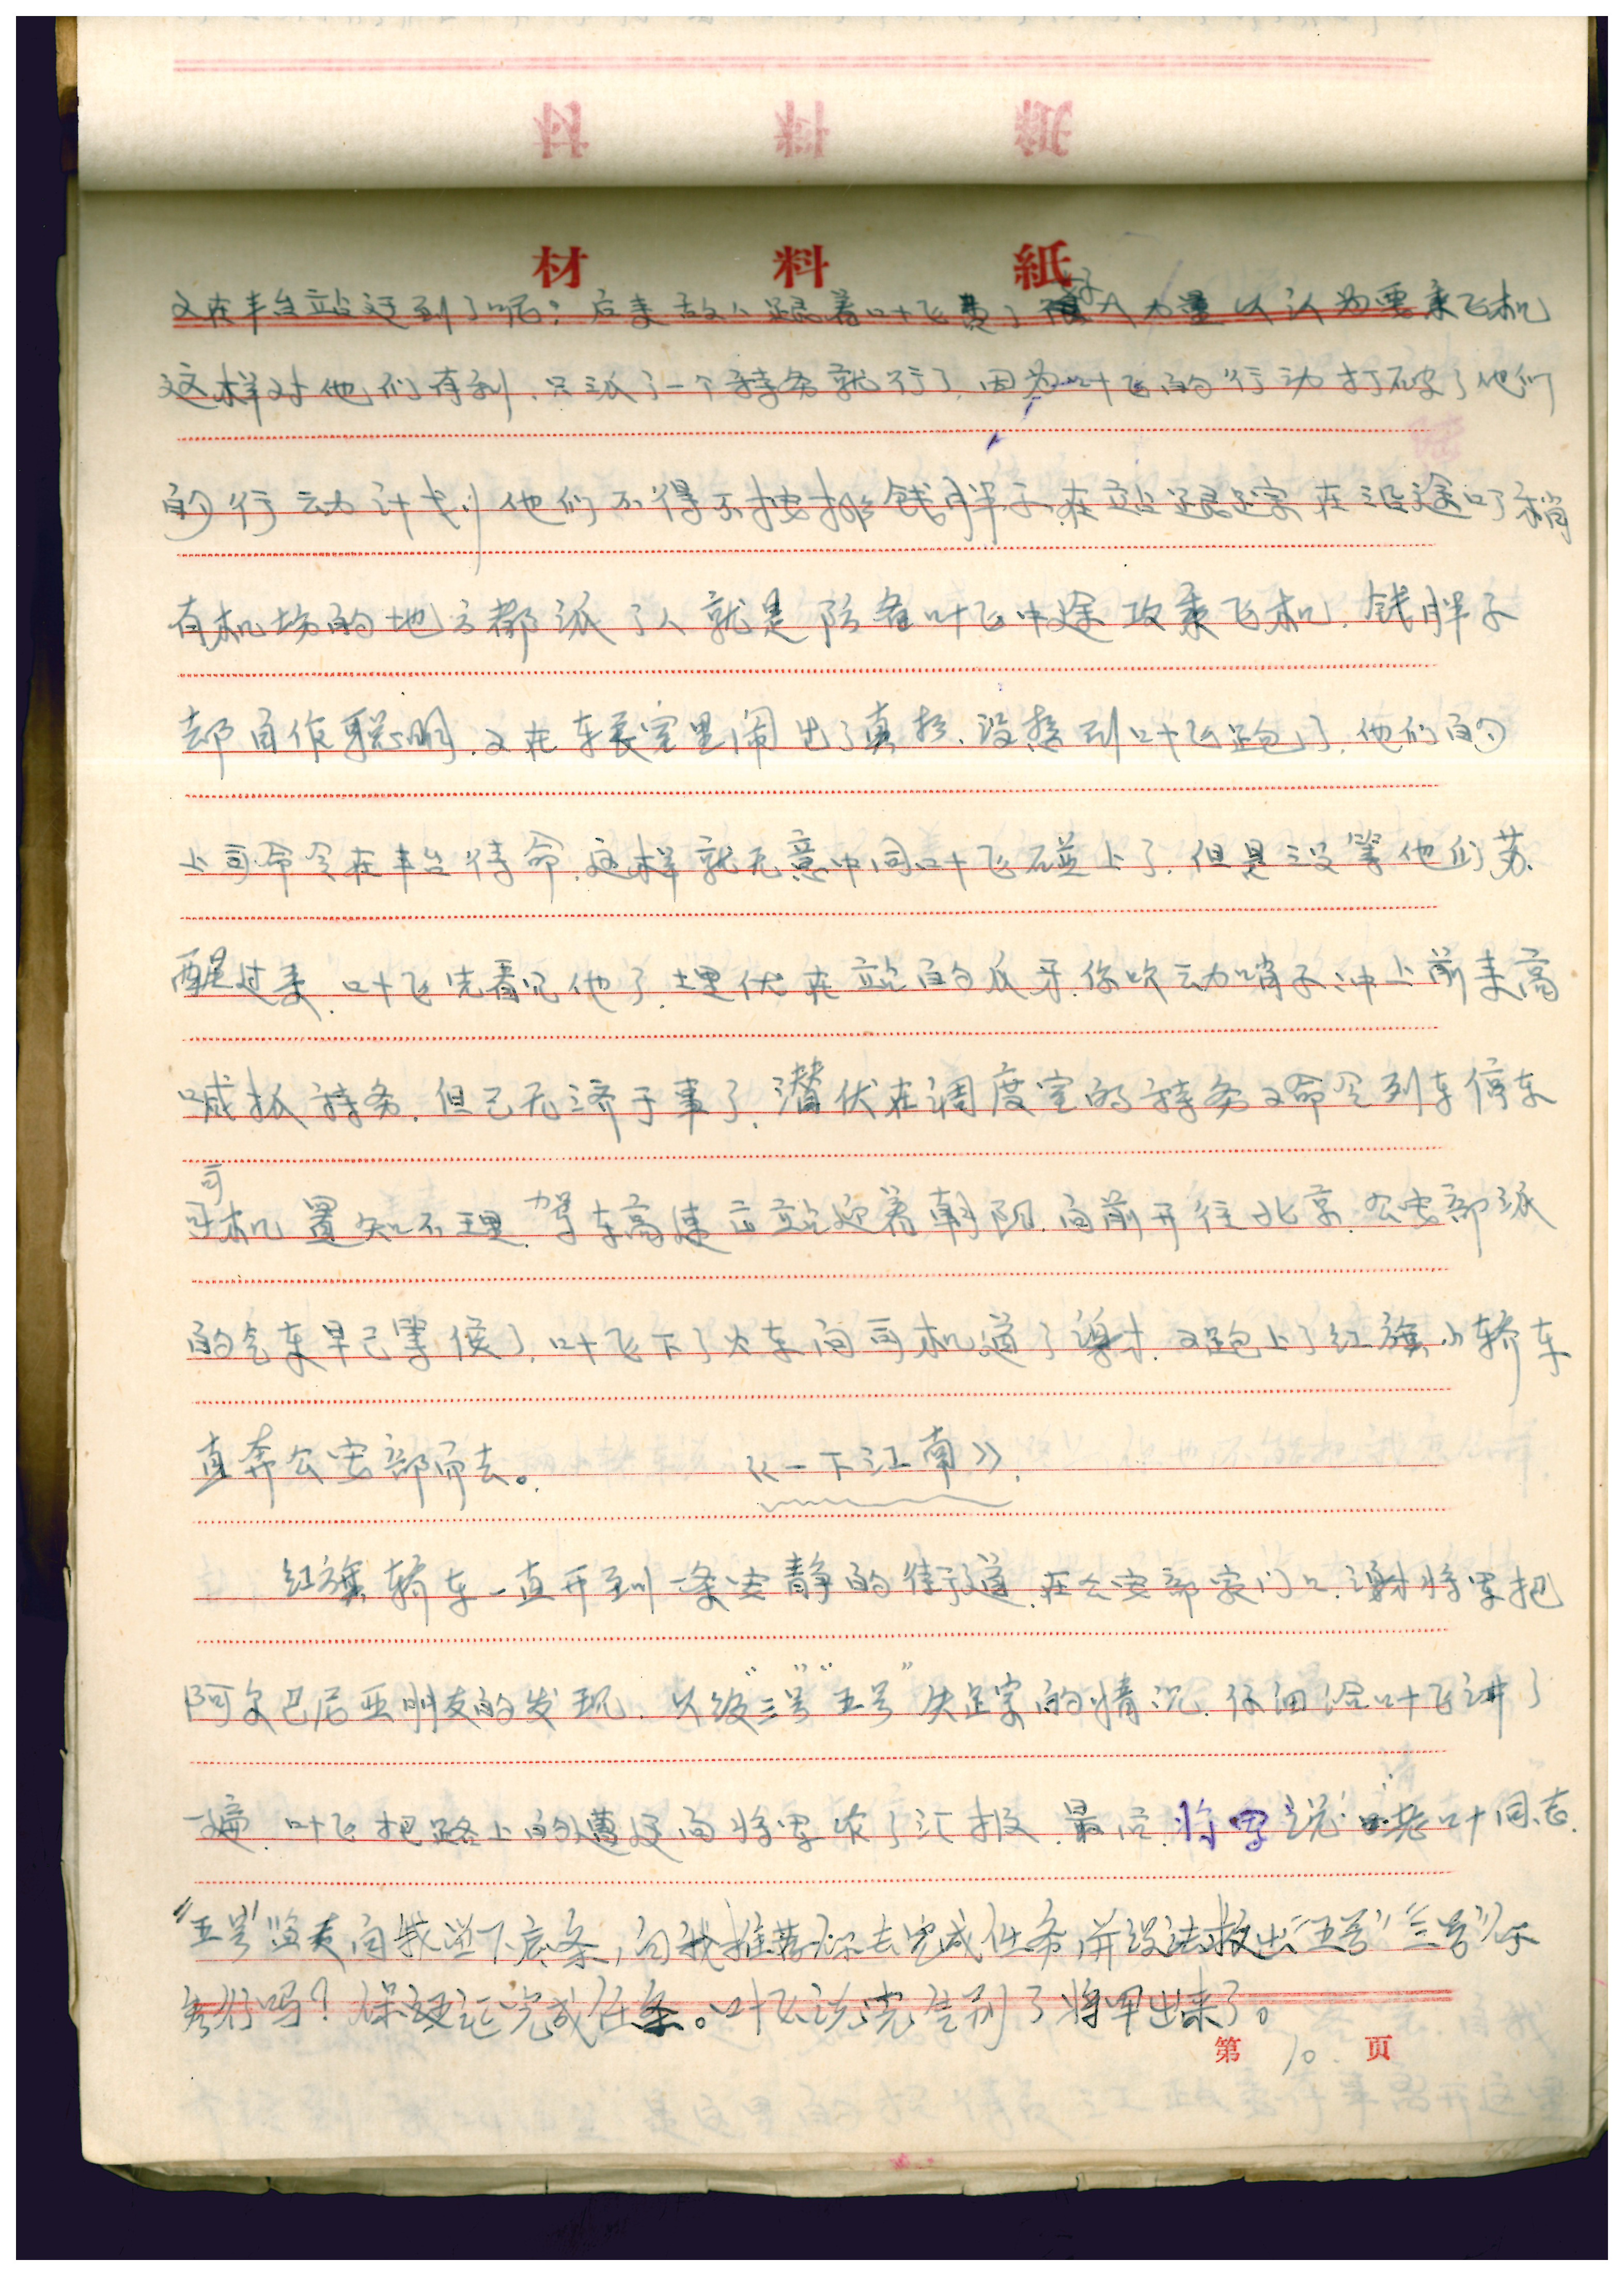 材料紙
又在丰台站迂到了呢？后来敌人跟着叶飞费了很大力量以认为要乘飞机
这样对他们有利，只派了一个特务就行了，因为叶飞的行动打破了他们
的行动计划他们不得不按排钱胖子在站跟踪在沿途了稍
有机场的地方都派了人就是防备叶飞中途改乘飞机，钱胖子
却自作聪明，又在车长室里闹出了真相，没想到叶飞跑了，他们的
上司命令在丰台待命，这样就无意中同叶飞碰上了，但是没等他们苏
醒过来，叶飞先看见他了，埋伏在站的爪牙，你吹动哨子冲上前来高
喊抓特务，但已无济于事了，潜伏在调度室的特务又命令列车停车
司机置知不理，驾车高速出站迎着朝阳，向前开往北京，公安部派
的气车早已等候了，叶飞下了火车向司机道了谢，又跑上了红旗小轿车
直奔公安部而去。 《一下江南》
红旗轿车一直开到一条安静的街道，在公安部家门口，谢将军把
阿尔巴尼亚朋友的发现，以及“三号”“五号”失踪的情况，仔细给叶飞讲了
一遍，叶飞把路上的遭迂向将军做了汇报，最后，将军说：“老叶同志，
“五号”临走向我留下底条，向我推荐你去完成任务，并设法救出“五号”“三号”
行吗？保证完成任务。叶飞说完告别了将军出来了。
第10页